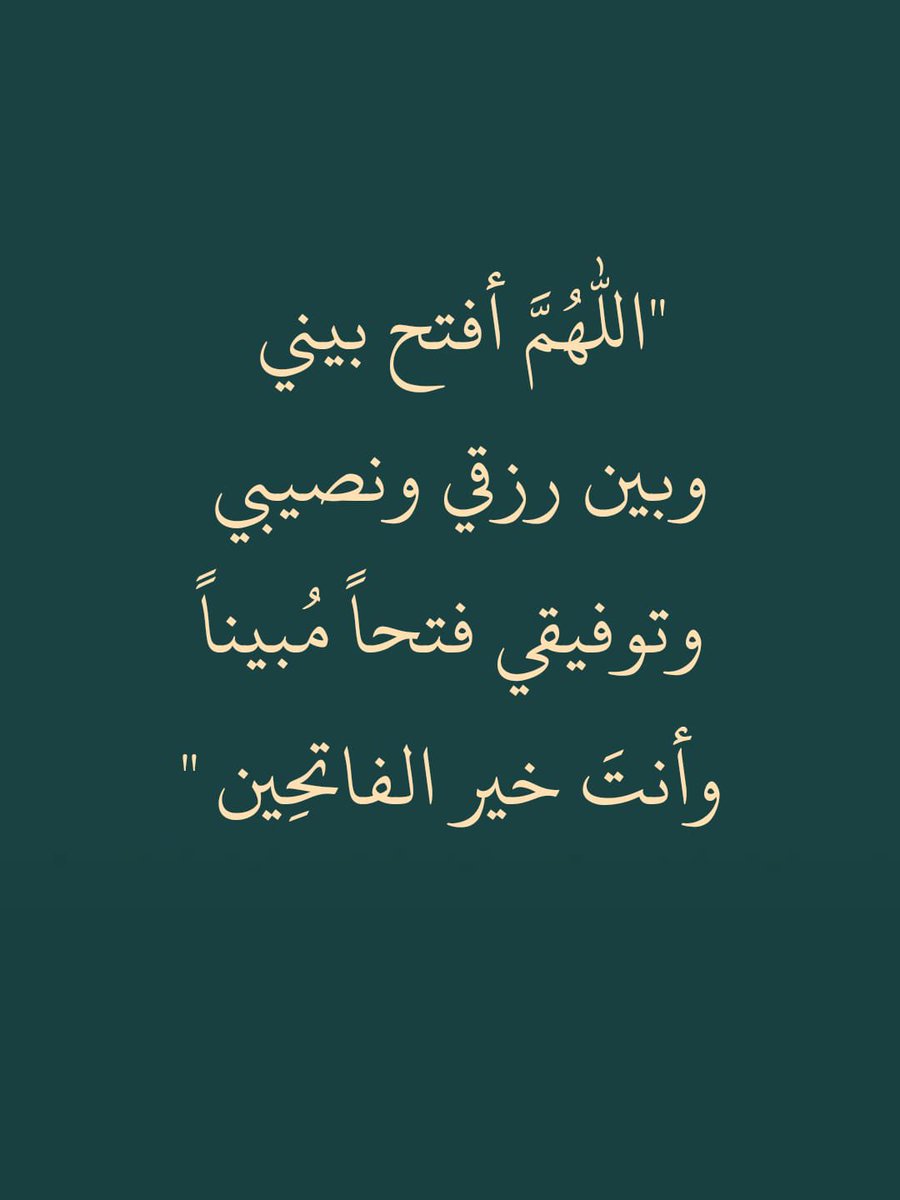 "اللّٰهُمَّ أفتح بيني
وبين رزقي ونصيبي
وتوفيقي فتحاً مُبيناً
وأنتَ خير الفاتحِين "